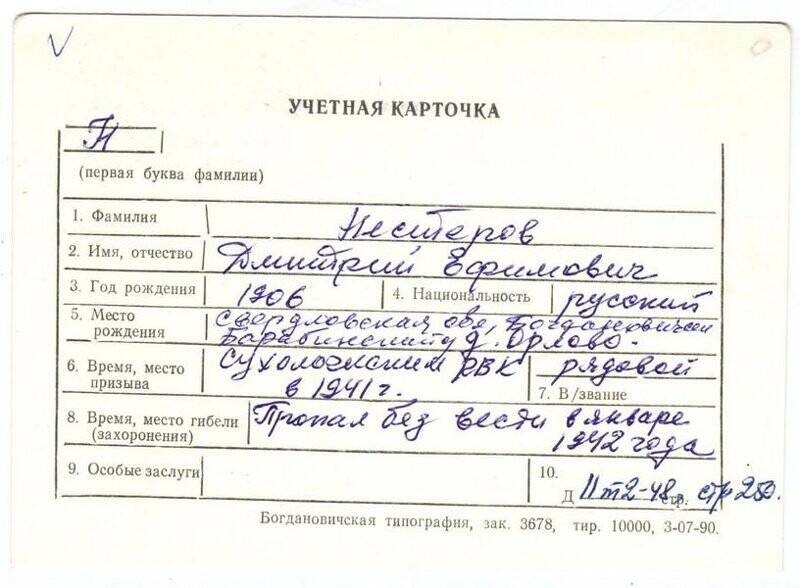 V
УЧЕТНАЯ КАРТОЧКА
Н
(первая буква фамилии)
1. Фамилия Нестеров
2. Имя, отчество Дмитрий Ефимович
3. Год рождения 1906 4. Национальность русский
5. Место рождения Свердловская обл,
Барабинский д. Орлово-
6. Время, место призыва Сухоложским РВК
в 1941 г.
рядовой
7. В/звание
8. Время, место гибели (захоронения) Пропал без вести в январе
1942 года
9. Особые заслуги
10.
Д II т2-48, стр. стр 250.
Богдановичская типография, зак. 3678, тир. 10000, 3-07-90.